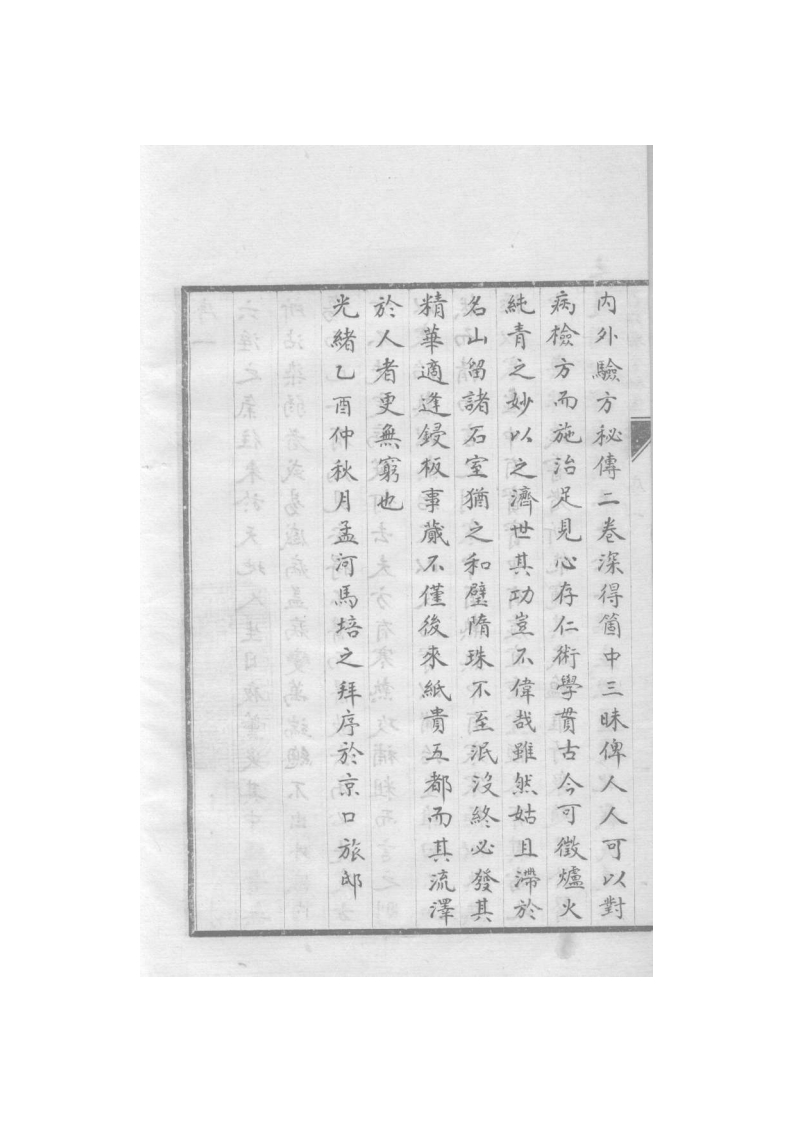 內外驗方秘傳二卷深得箇中三昧俾人人可以對
病檢方而施治足見心存仁術學貫古今可徵爐火
純青之妙以之濟世其功豈不偉哉雖然姑且滯於
名山留諸石室猶之和璧隋珠不至泯沒終必發其
精華適逢鋟板事蕆不僅後來紙貴五都而其流澤
於人者更無窮也
光緒乙酉仲秋月孟河馬培之拜序於京口旅邸